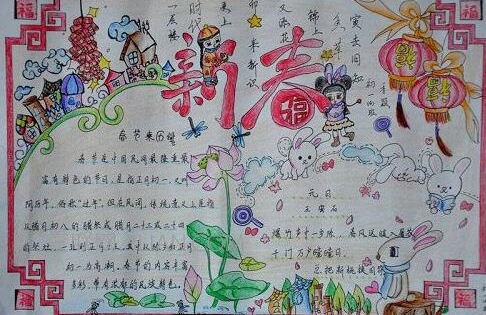 福
福
新春
福
福
福
春节来历
春节是中国民间最隆重最
富有特色的节日,是指正月初一,又叫
阴历年,俗称"过年"。但在民间,传统意义上是指
从腊月初八的腊祭或腊月二十三或二十四
的祭灶,一直到正月十五,其中以除夕和正月
初一为高潮。春节的内容丰富
多彩,带有浓郁的民族特色。
元日
王安石
爆竹声中一岁除,春风送暖入屠苏
千门万户曈曈日,
总把新桃换旧符
福
福